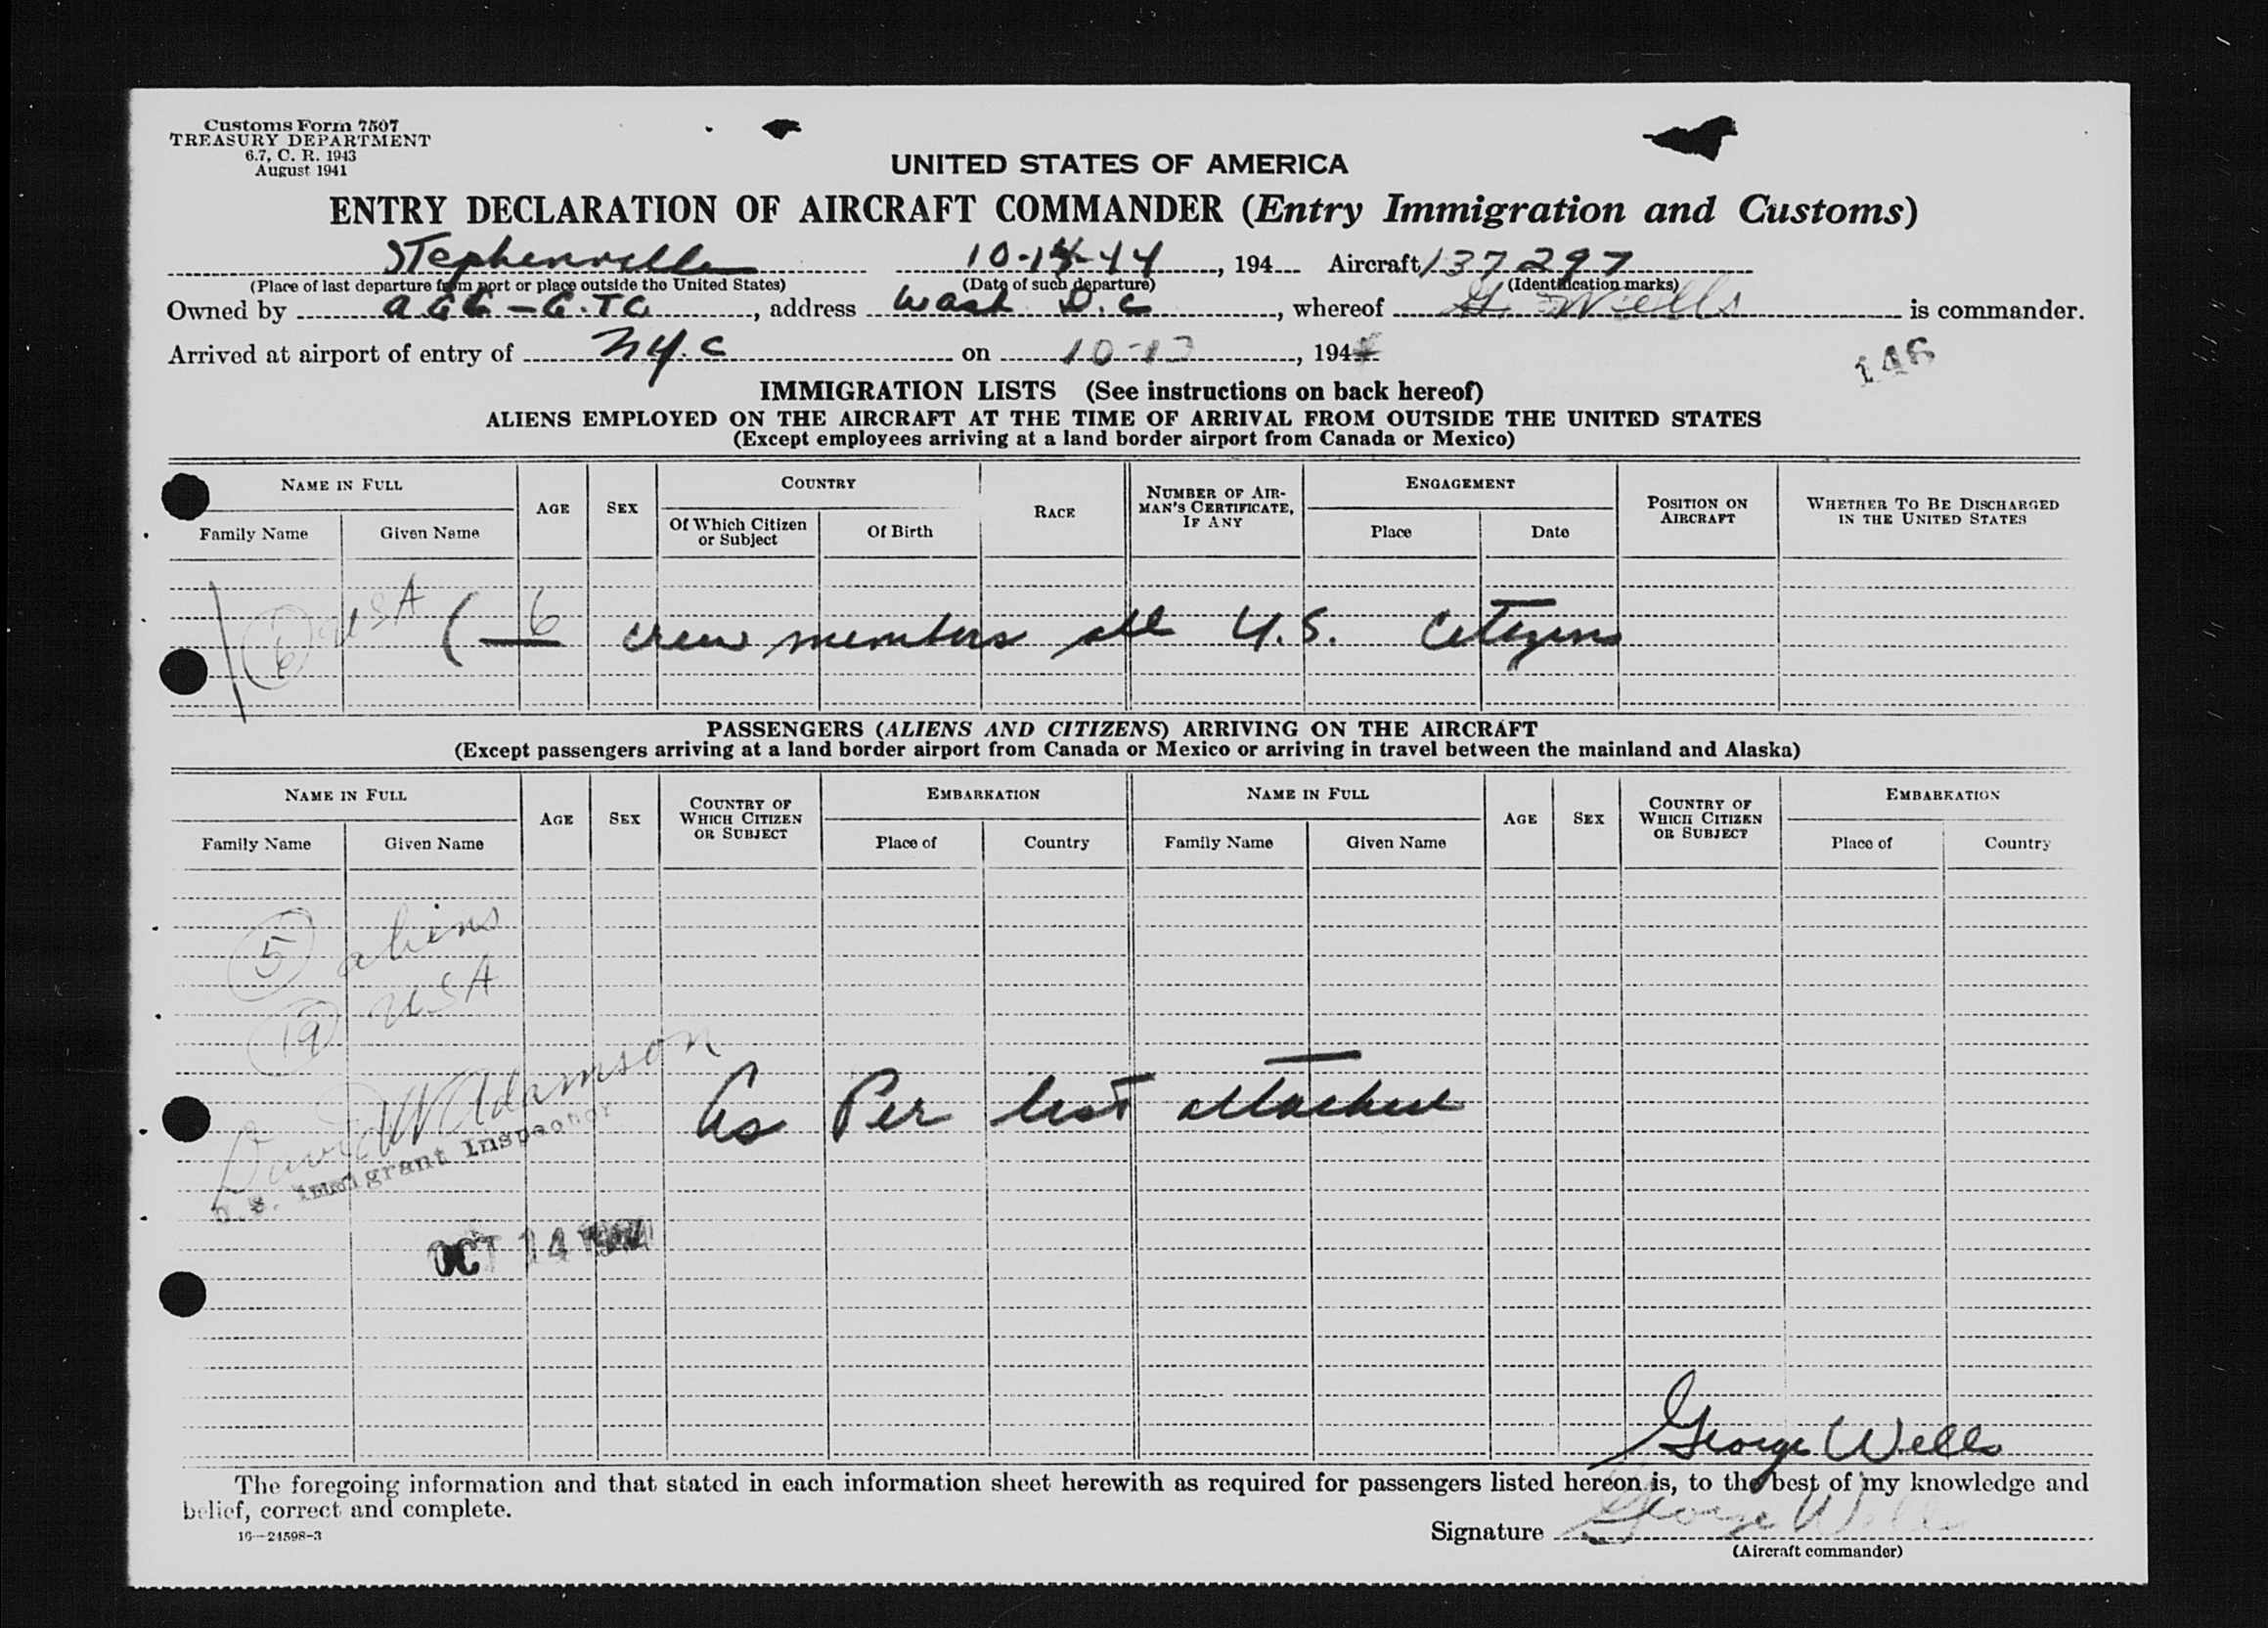 Customs Form 7507
TREASURY DEPARTMENT
6.7, C. R. 1943
August 1941
UNITED STATES OF AMERICA
ENTRY DECLARATION OF AIRCRAFT COMMANDER (Entry Immigration and Customs)
Stephenville 10-14-44, 194 Aircraft 137297
(Place of last departure from port or place outside the United States) (Date of such departure) (Identification marks)
Owned by , address Wash D.C, whereof G. Wells is commander.
Arrived at airport of entry of NY.C on 10-13, 194
146
IMMIGRATION LISTS (See instructions on back hereof)
ALIENS EMPLOYED ON THE AIRCRAFT AT THE TIME OF ARRIVAL FROM OUTSIDE THE UNITED STATES
(Except employees arriving at a land border airport from Canada or Mexico)
NAME IN FULL AGE SEX COUNTRY RACE NUMBER OF AIRMAN'S CERTIFICATE, IF ANY ENGAGEMENT POSITION ON AIRCRAFT WHETHER TO BE DISCHARGED IN THE UNITED STATES
Family Name Given Name Of Which Citizen or Subject Of Birth Place Date
6 USA ( 6 crew members all U.S. Citizens
PASSENGERS (ALIENS AND CITIZENS) ARRIVING ON THE AIRCRAFT
(Except passengers arriving at a land border airport from Canada or Mexico or arriving in travel between the mainland and Alaska)
NAME IN FULL AGE SEX COUNTRY OF WHICH CITIZEN OR SUBJECT EMBARKATION NAME IN FULL AGE SEX COUNTRY OF WHICH CITIZEN OR SUBJECT EMBARKATION
Family Name Given Name Place of Country Family Name Given Name Place of Country
5 aliens
19 USA
David W Adamson
U.S. Immigrant Inspector
As Per list attached
OCT 14 1944
George Wells
The foregoing information and that stated in each information sheet herewith as required for passengers listed hereon is, to the best of my knowledge and
belief, correct and complete.
16—24598-3
Signature George Wells
(Aircraft commander)